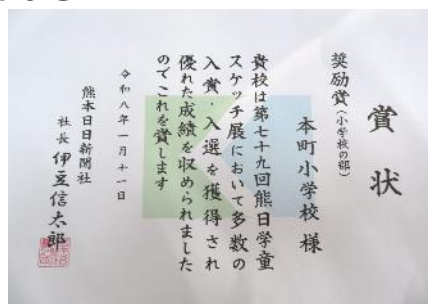 賞状
奨励賞(小学校の部)
本町小学校 様
貴校は第七十九回熊日学童
スケッチ展において多数の
入賞・入選を獲得され
優れた成績を収められました
のでこれを賞します
令和八年一月十一日
熊本日日新聞社
社長 伊豆信太郎